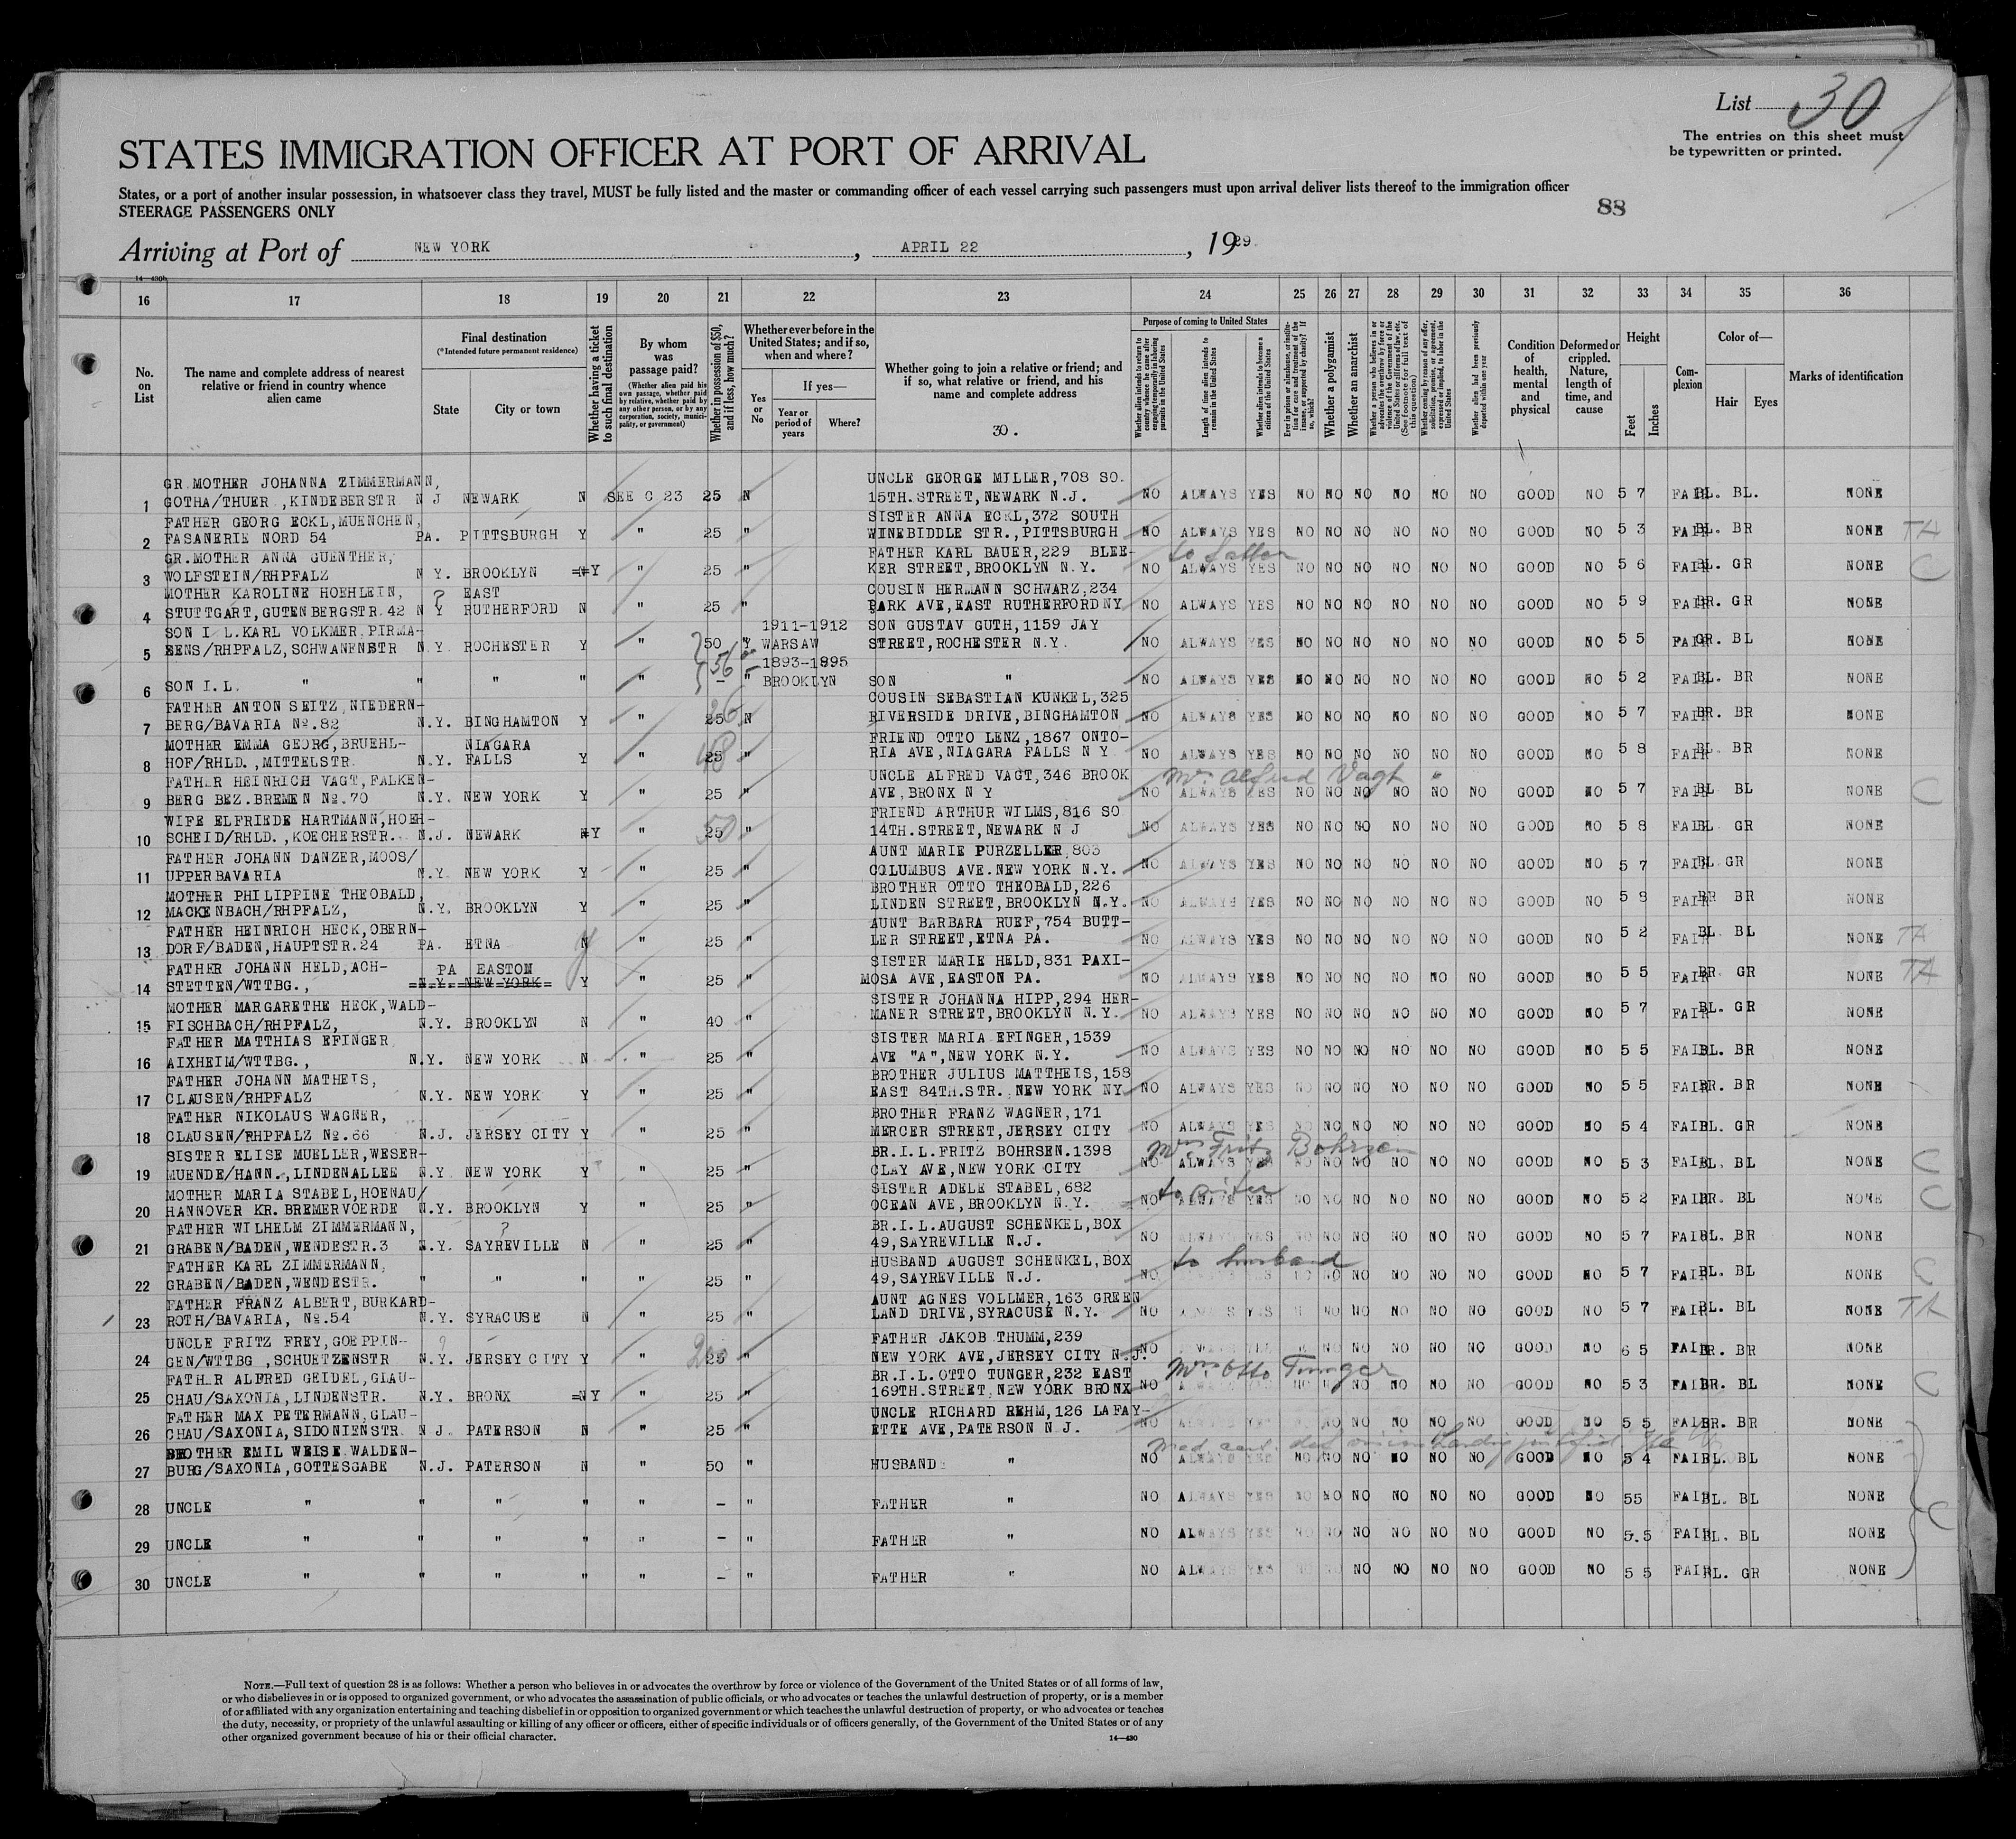 List 30
The entries on this sheet must
be typewritten or printed.
STATES IMMIGRATION OFFICER AT PORT OF ARRIVAL
States, or a port of another insular possession, in whatsoever class they travel, MUST be fully listed and the master or commanding officer of each vessel carrying such passengers must upon arrival deliver lists thereof to the immigration officer
STEERAGE PASSENGERS ONLY
88
Arriving at Port of NEW YORK, APRIL 22, 1929
14—430b
16 17 18 19 20 21 22 23 24 25 26 27 28 29 30 31 32 33 34 35 36
No. on List
The name and complete address of nearest relative or friend in country whence alien came
Final destination
(*Intended future permanent residence)
State
City or town
Whether having a ticket to such final destination
By whom was passage paid?
(Whether alien paid his own passage, whether paid by relative, whether paid by any other person, or by any corporation, society, municipality, or government)
Whether in possession of $50, and if less, how much?
Whether ever before in the United States; and if so, when and where?
Yes or No
If yes—
Year or period of years
Where?
Whether going to join a relative or friend; and if so, what relative or friend, and his name and complete address
30.
Purpose of coming to United States
Whether alien intends to return to country whence he came after engaging temporarily in laboring pursuits in the United States
Length of time alien intends to remain in the United States
Whether alien intends to become a citizen of the United States
Ever in prison or almshouse, or institution for care and treatment of the insane, or supported by charity? If so, which?
Whether a polygamist
Whether an anarchist
Whether a person who believes in or advocates the overthrow by force or violence of the Government of the United States or all forms of law, etc. (See footnote for full text of this question)
Whether coming by reason of any offer, solicitation, promise, or agreement, expressed or implied, to labor in the United States
Whether alien had been previously deported within one year
Condition of health, mental and physical
Deformed or crippled. Nature, length of time, and cause
Height
Feet
Inches
Complexion
Color of—
Hair
Eyes
Marks of identification
GR.MOTHER JOHANNA ZIMMERMANN, UNCLE GEORGE MILLER,708 SO.
1 GOTHA/THUER.,KINDEBERSTR N J NEWARK N SEE C 23 25 N 15TH.STREET,NEWARK N.J. NO ALWAYS YES NO NO NO NO NO NO GOOD NO 5 7 FAIR BL. BL. NONE
FATHER GEORG ECKL,MUENCHEN, SISTER ANNA ECKL,372 SOUTH
2 FASANERIE NORD 54 PA. PITTSBURGH Y " 25 " WINEBIDDLE STR.,PITTSBURGH NO ALWAYS YES NO NO NO NO NO NO GOOD NO 5 3 FAIR BL. BR NONE TA
GR.MOTHER ANNA GUENTHER, FATHER KARL BAUER,229 BLEE- to father
3 WOLFSTEIN/RHPFALZ N Y. BROOKLYN N Y " 25 " KER STREET,BROOKLYN N.Y. NO ALWAYS YES NO NO NO NO NO NO GOOD NO 5 6 FAIR BL. GR NONE C
MOTHER KAROLINE HOEHLEIN, ? EAST COUSIN HERMANN SCHWARZ,234
4 STUTTGART,GUTENBERGSTR.42 N Y RUTHERFORD N " 25 " PARK AVE,EAST RUTHERFORD NY NO ALWAYS YES NO NO NO NO NO NO GOOD NO 5 9 FAIR BR. GR NONE
SON I L.KARL VOLKMER,PIRMA- 1911-1912 SON GUSTAV GUTH,1159 JAY
5 SENS/RHPFALZ,SCHWANENSTR N.Y. ROCHESTER Y " 50 Y WARSAW STREET,ROCHESTER N.Y. NO ALWAYS YES NO NO NO NO NO NO GOOD NO 5 5 FAIR GR. BL NONE
56 1893-1895
6 SON I.L. " " " " " - " BROOKLYN SON " NO ALWAYS YES NO NO NO NO NO NO GOOD NO 5 2 FAIR BL. BR NONE
FATHER ANTON SEITZ,NIEDERN- COUSIN SEBASTIAN KUNKEL,325
7 BERG/BAVARIA No.82 N.Y. BINGHAMTON Y " 25 N RIVERSIDE DRIVE,BINGHAMTON NO ALWAYS YES NO NO NO NO NO NO GOOD NO 5 7 FAIR BR. BR NONE
MOTHER EMMA GEORG,BRUEHL- NIAGARA FRIEND OTTO LENZ,1867 ONTO-
8 HOF/RHLD.,MITTELSTR. N.Y. FALLS Y " 25 " RIA AVE,NIAGARA FALLS N Y NO ALWAYS YES NO NO NO NO NO NO GOOD NO 5 8 FAIR BL. BR NONE
FATHER HEINRICH VAGT,FALKEN- UNCLE ALFRED VAGT,346 BROOK Mr. Alfred Vagt
9 BERG BEZ.BREMEN No.70 N.Y. NEW YORK Y " 25 " AVE,BRONX N Y NO ALWAYS YES NO NO NO NO NO NO GOOD NO 5 7 FAIR BL BL NONE C
WIFE ELFRIEDE HARTMANN,HOEH- FRIEND ARTHUR WILMS,816 SO
10 SCHEID/RHLD.,KOECHERSTR. N.J. NEWARK N Y " 25 50 " 14TH.STREET,NEWARK N J NO ALWAYS YES NO NO NO NO NO NO GOOD NO 5 8 FAIR BL GR NONE
FATHER JOHANN DANZER,MOOS/ AUNT MARIE PURZELLER,803
11 UPPERBAVARIA N.Y. NEW YORK Y " 25 " COLUMBUS AVE.NEW YORK N.Y. NO ALWAYS YES NO NO NO NO NO NO GOOD NO 5 7 FAIR BL GR NONE
MOTHER PHILIPPINE THEOBALD, BROTHER OTTO THEOBALD,226
12 MACKENBACH/RHPFALZ, N.Y. BROOKLYN Y " 25 " LINDEN STREET,BROOKLYN N.Y. NO ALWAYS YES NO NO NO NO NO NO GOOD NO 5 8 FAIR BR BR NONE
FATHER HEINRICH HECK,OBERN- AUNT BARBARA RUEF,754 BUTT-
13 DORF/BADEN,HAUPTSTR.24 PA. ETNA N y " 25 " LER STREET,ETNA PA. NO ALWAYS YES NO NO NO NO NO NO GOOD NO 5 2 FAIR BL. BL NONE TA
FATHER JOHANN HELD,ACH- PA EASTON SISTER MARIE HELD,831 PAXI-
14 STETTEN/WTTBG., N.Y. NEW YORK Y " 25 " MOSA AVE,EASTON PA. NO ALWAYS YES NO NO NO NO NO NO GOOD NO 5 5 FAIR BR. GR NONE TA
MOTHER MARGARETHE HECK,WALD- SISTER JOHANNA HIPP,294 HER-
15 FISCHBACH/RHPFALZ, N.Y. BROOKLYN N " 40 " MANER STREET,BROOKLYN N.Y. NO ALWAYS YES NO NO NO NO NO NO GOOD NO 5 7 FAIR BL. GR NONE
FATHER MATTHIAS EFINGER SISTER MARIA EFINGER,1539
16 AIXHEIM/WTTBG., N.Y. NEW YORK N " 25 " AVE "A",NEW YORK N.Y. NO ALWAYS YES NO NO NO NO NO NO GOOD NO 5 5 FAIR BL. BR NONE
FATHER JOHANN MATHEIS, BROTHER JULIUS MATTHEIS,158
17 CLAUSEN/RHPFALZ N.Y. NEW YORK Y " 25 " EAST 84TH.STR. NEW YORK NY NO ALWAYS YES NO NO NO NO NO NO GOOD NO 5 5 FAIR BR. BR NONE
FATHER NIKOLAUS WAGNER, BROTHER FRANZ WAGNER,171
18 CLAUSEN/RHPFALZ No.66 N.J. JERSEY CITY Y " 25 " MERCER STREET,JERSEY CITY NO ALWAYS YES NO NO NO NO NO NO GOOD NO 5 4 FAIR BL. GR NONE
SISTER ELISE MUELLER,WESER- BR.I.L.FRITZ BOHRSEN.1398 Mrs Fritz Bohrsen
19 MUENDE/HANN.,LINDENALLEE N.Y. NEW YORK Y " 25 " CLAY AVE,NEW YORK CITY NO ALWAYS YES NO NO NO NO NO NO GOOD NO 5 3 FAIR BL. BL NONE C
MOTHER MARIA STABEL,HOENAU/ SISTER ADELE STABEL,682 to sister
20 HANNOVER KR.BREMERVOERDE N.Y. BROOKLYN Y " 25 " OCEAN AVE,BROOKLYN N.Y. NO ALWAYS YES NO NO NO NO NO NO GOOD NO 5 2 FAIR BR. BL NONE C
FATHER WILHELM ZIMMERMANN, ? BR.I.L.AUGUST SCHENKEL,BOX
21 GRABEN/BADEN,WENDESTR.3 N.Y. SAYREVILLE N " 25 " 49,SAYREVILLE N.J. NO ALWAYS YES NO NO NO NO NO NO GOOD NO 5 7 FAIR BL. BR NONE
FATHER KARL ZIMMERMANN, HUSBAND AUGUST SCHENKEL,BOX to husband
22 GRABEN/BADEN,WENDESTR. " " " " 25 " 49,SAYREVILLE N.J. NO NO NO NO NO NO GOOD NO 5 7 FAIR BL. BL NONE C
FATHER FRANZ ALBERT,BURKARD- AUNT AGNES VOLLMER,163 GREEN
23 ROTH/BAVARIA, No.54 N.Y. SYRACUSE N " 25 " LAND DRIVE,SYRACUSE N.Y. NO ALWAYS YES NO NO NO NO NO GOOD NO 5 7 FAIR BL. BL NONE TA
UNCLE FRITZ FREY,GOEPPIN- ? FATHER JAKOB THUMM,239
24 GEN/WTTBG ,SCHUETZENSTR N.Y. JERSEY CITY Y " 25 200 " NEW YORK AVE,JERSEY CITY N.J. NO NO NO NO NO GOOD NO 6 5 FAIR BR. BR NONE
FATHER ALFRED GEIDEL,GLAU- BR.I.L.OTTO TUNGER,232 EAST Mrs Otto Tunger
25 CHAU/SAXONIA,LINDENSTR. N.Y. BRONX N Y " 25 " 169TH.STREET,NEW YORK BRONX NO NO NO NO NO GOOD NO 5 3 FAIR BR. BL NONE C
FATHER MAX PETERMANN,GLAU- UNCLE RICHARD REHM,126 LAFAY-
26 CHAU/SAXONIA,SIDONIENSTR. N J. PATERSON N " 25 " ETTE AVE,PATERSON N.J. NO ALWAYS YES NO NO NO NO NO GOOD NO 5 5 FAIR BR. BR NONE
BROTHER EMIL WEISE,WALDEN-
27 BURG/SAXONIA,GOTTESGABE N.J. PATERSON N " 50 " HUSBAND " NO ALWAYS YES NO NO NO NO NO NO GOOD NO 5 4 FAIR BL. BL NONE
28 UNCLE " " " " " - " FATHER " NO ALWAYS YES NO NO NO NO NO NO GOOD NO 55 FAIR BL. BL NONE C
29 UNCLE " " " " " - " FATHER " NO ALWAYS YES NO NO NO NO NO NO GOOD NO 5.5 FAIR BL. BL NONE
30 UNCLE " " " " " - " FATHER " NO ALWAYS YES NO NO NO NO GOOD NO 5 5 FAIR BL. GR NONE
NOTE.—Full text of question 28 is as follows: Whether a person who believes in or advocates the overthrow by force or violence of the Government of the United States or of all forms of law,
or who disbelieves in or is opposed to organized government, or who advocates the assassination of public officials, or who advocates or teaches the unlawful destruction of property, or is a member
of or affiliated with any organization entertaining and teaching disbelief in or opposition to organized government or which teaches the unlawful destruction of property, or who advocates or teaches
the duty, necessity, or propriety of the unlawful assaulting or killing of any officer or officers, either of specific individuals or of officers generally, of the Government of the United States or of any
other organized government because of his or their official character.
14—430